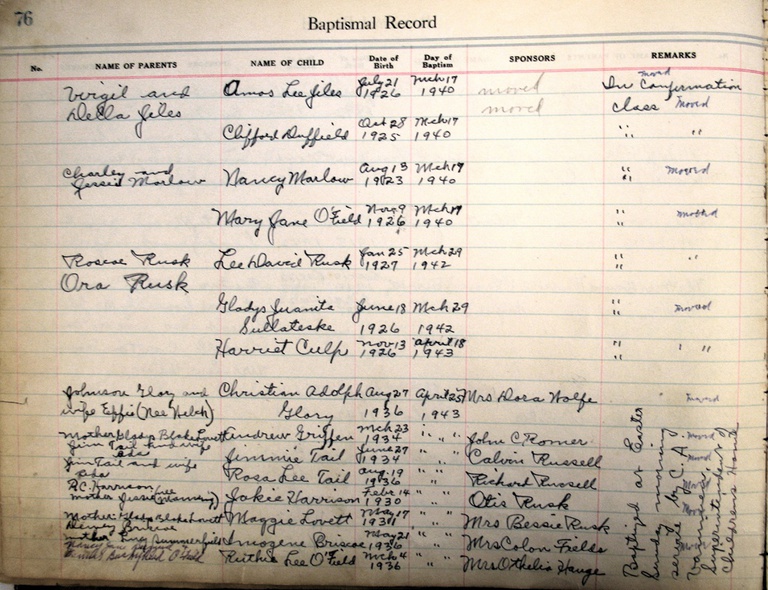 76
Baptismal Record
No. NAME OF PARENTS NAME OF CHILD Date of Birth Day of Baptism SPONSORS REMARKS
Virgil and Amos Lee Jiles July 21 1926 Mch 17 1940 moved In Confirmation moved
Della Jiles moved class moved
Clifford Duffield Oct 28 1925 Mch 17 1940 " "
Charley and Jessie Marlow Nancy Marlow Aug 13 1923 Mch 17 1940 " moved
Mary Jane O'Field Nov 9 1926 Mch 17 1940 " moved
Roscoe Rusk Lee David Rusk Jan 25 1927 Mch 29 1942 " "
Ora Rusk
Gladys Juanita June 18 Mch 29 " moved
Sullateske 1926 1942 "
Harriet Culp Nov 13 1926 April 18 1943 " "
Johnson Glory and Christian Adolph Aug 27 April 25 Mrs Dora Wolfe moved
wife Effie (Nee Welch) Glory 1936 1943
Mother Gladys Blake Lovett Andrew Griffen Mch 23 1934 " " John C Romer moved
Jim Tail and wife Ada Jimmie Tail June 27 1934 " " Calvin Russell moved
Jim Tail and wife Ada Rosa Lee Tail Aug 19 1936 " " Richard Russell
R.C. Harrison Jakie Harrison Feb 14 1930 " " Otis Rusk
mother Jessie (nee
Mother Gladys Blake Lovett Maggie Lovett May 17 " " Mrs Bessie Rusk
Briscoe
mother Lucy Summerfield Imogene Briscoe May 21 1936 " " Mrs Colon Fields
Ruthie Lee O'Field Mch 4 1936 " " Mrs Othelia Hauge
Baptized at Easter
Sunday morning
service by C.A.
Superintendent of
Children's Home